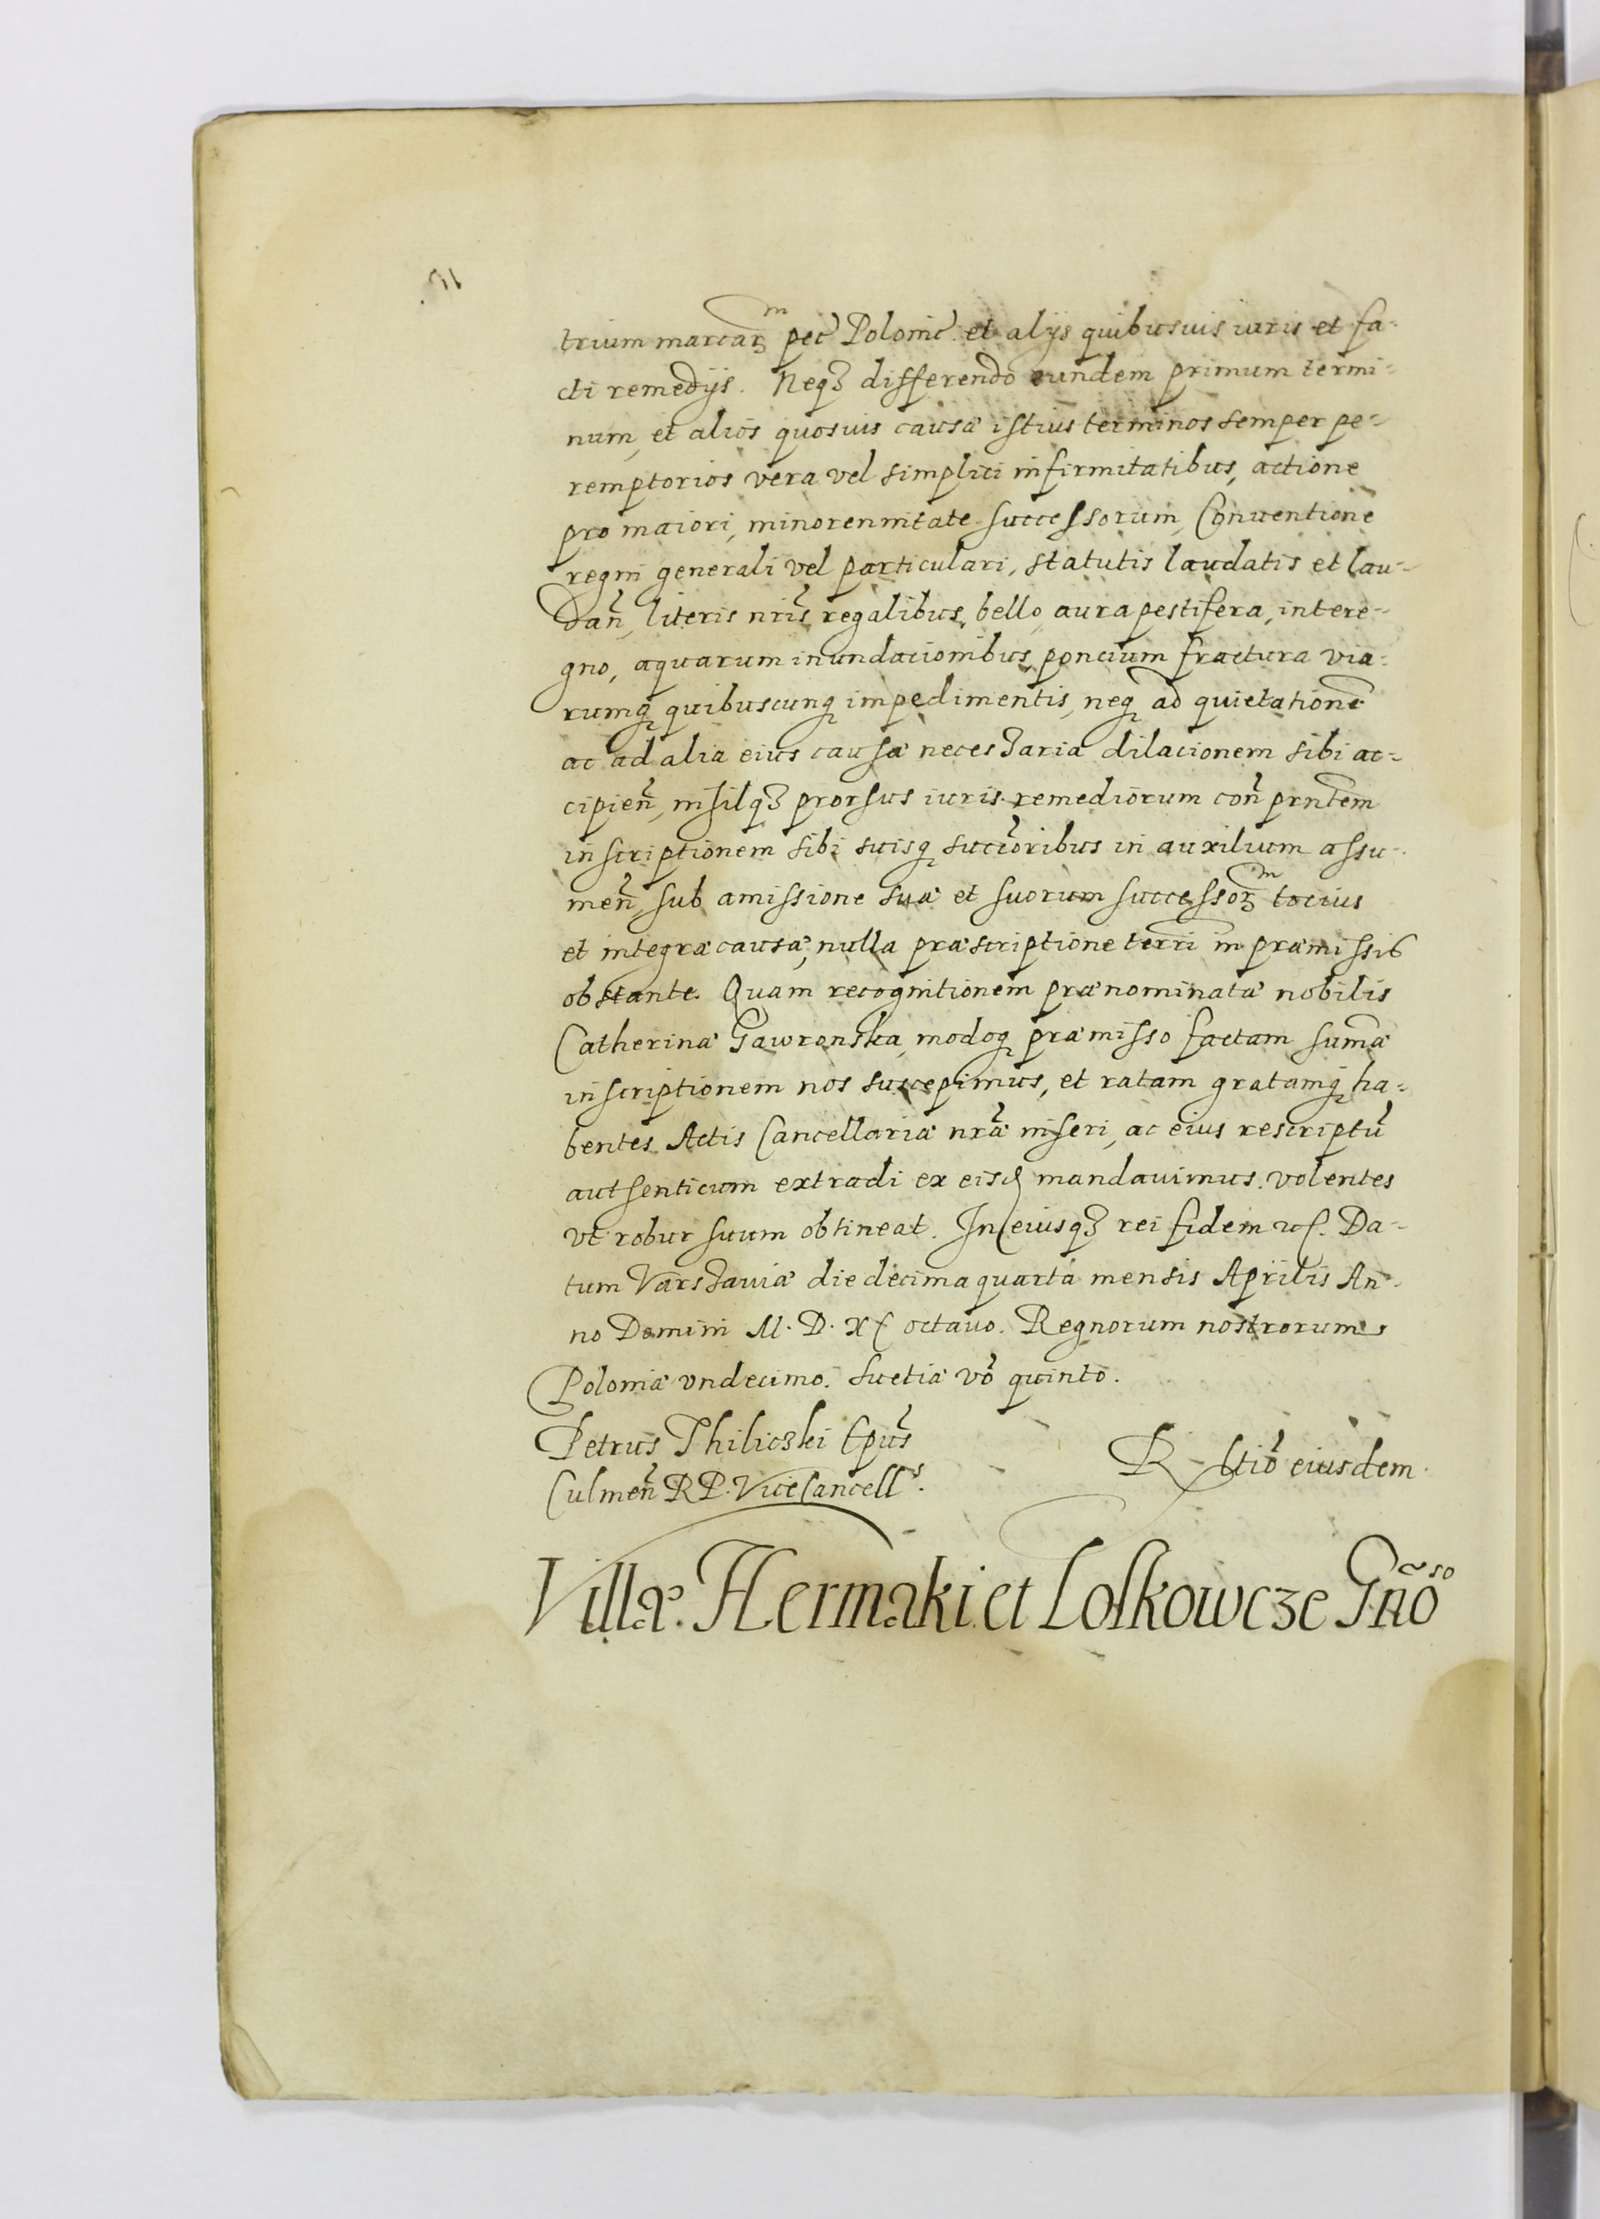 trium marcarꝫ^m pec̃ Polonic̃ et alijs quibusuis iuris et fa-
cti remedijs. Neqꝫ differendo eundem primum termi-
num, et alios quosuis causæ istius terminos semper pe-
remptorios vera vel simplici infirmitatibus, actione
pro maiori, minorennitate successorum, Conuentione
regni generali vel particulari, statutis laudatis et lau-
dañ, literis nr̃is regalibus, bello, aura pestifera, intere-
gno, aquarum inundacionibus, poncium fractura via-
rumq́ quibuscunq́ impedimentis, neq́ ad quietationẽ
ac ad alia eius causæ necessaria dilacionem sibi ac-
cipieñ, nihilqꝫ prorsus iuris remediorum coñ prñtem
inscriptionem sibi suisq́ succ̃oribus in auxilium assu-
meñ, sub amissione suæ et suorum successorꝫ^m tocius
et integræ causæ, nulla præscriptione terrĩ in præmissis
obstante. Quam recognitionem prænominatæ nobilis
Catherinæ Gawronska, modoq́ præmisso factam summæ
inscriptionem nos suscepimus, et ratam gratamq́ ha-
bentes Actis Cancellariæ nr̃æ inseri, ac eius rescriptũ
authenticum extradi ex eisd mandauimus. volentes
vt robur suum obtineat. In eiusqꝫ rei fidem etc. Da-
tum Varsꝫauiæ die decima quarta mensis Aprilis An-
no Domini M. D. XC octauo. Regnorum nostrorum
Poloniæ vndecimo. Suetiæ vo᷒ quinto.
Petrus Thiliczki Ep̃us
Culmeñ R P. ViceCancell^s.
R ltio᷒ eiusdem.
Villæ. Hermaki et Loskowcze Gñoso